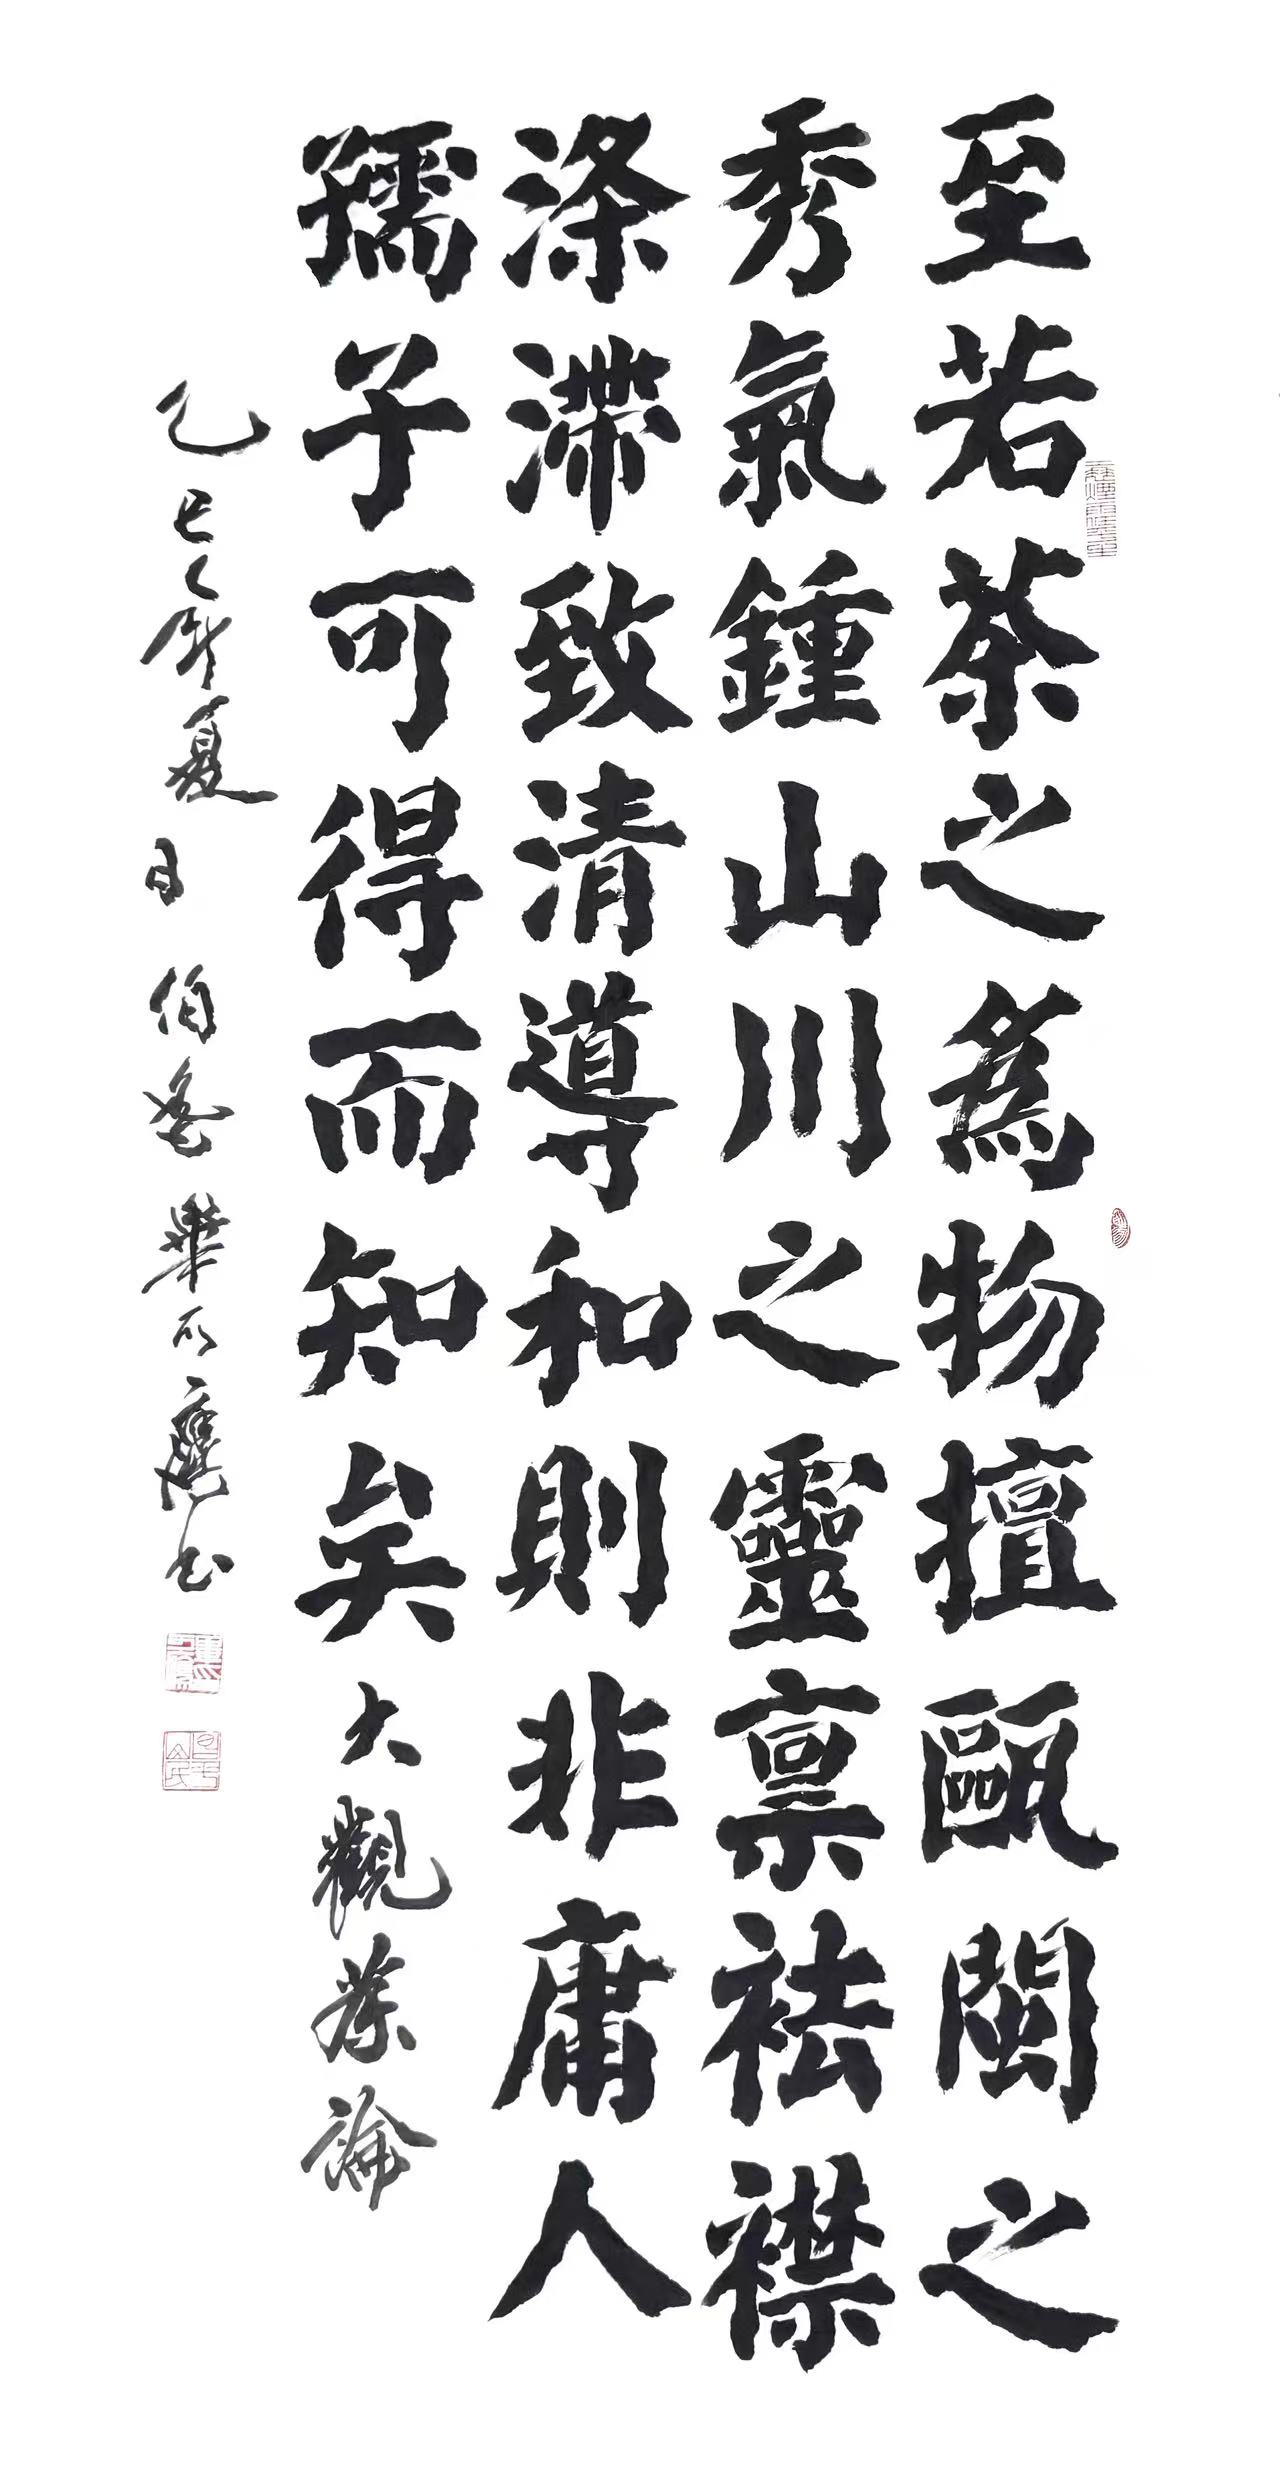 至若茶之為物擅甌閩之
秀氣鍾山川之靈禀祛襟
滌滯致清導和則非庸人
孺子可得而知矣大觀茶論
乙巳年夏日伯